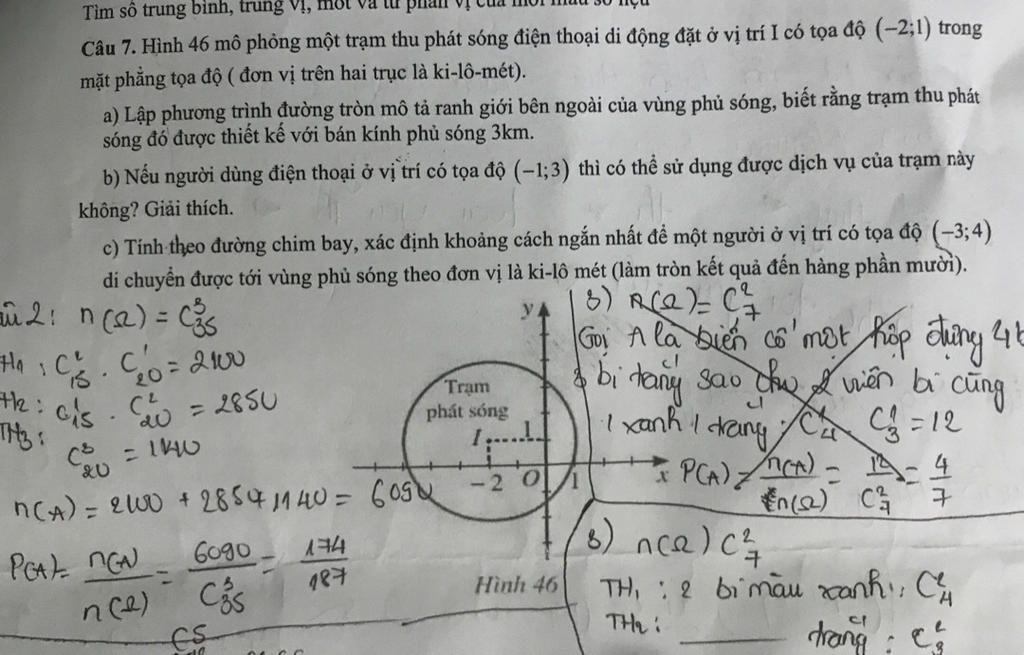 Tìm số trung bình, trung vị, mốt và tứ phân vị của mỗi mẫu số liệu
Câu 7. Hình 46 mô phỏng một trạm thu phát sóng điện thoại di động đặt ở vị trí I có tọa độ (−2;1) trong
mặt phẳng tọa độ ( đơn vị trên hai trục là ki-lô-mét).
a) Lập phương trình đường tròn mô tả ranh giới bên ngoài của vùng phủ sóng, biết rằng trạm thu phát
sóng đó được thiết kế với bán kính phủ sóng 3km.
b) Nếu người dùng điện thoại ở vị trí có tọa độ (−1;3) thì có thể sử dụng được dịch vụ của trạm này
không? Giải thích.
c) Tính theo đường chim bay, xác định khoảng cách ngắn nhất để một người ở vị trí có tọa độ (−3;4)
di chuyển được tới vùng phủ sóng theo đơn vị là ki-lô mét (làm tròn kết quả đến hàng phần mười).
2: n(Ω) = C³₃₅
TH₁ : C²₁₅ . C¹₂₀ = 2100
TH₂ : C¹₁₅ . C²₂₀ = 2850
TH₃ :
C³₂₀ = 1140
n(A) = 2100 + 2850 + 1140 = 6090
P(A) = n(A)/n(Ω) = 6090/C³₃₅ = 174/187
C⁵
y
Trạm
phát sóng
I 1
−2 O 1 x
Hình 46
8) n(Ω) = C²₇
Gọi A là biến cố một hộp đựng 4
3 bi trắng sao cho 2 viên bi cùng
1 xanh 1 trắng : C¹₄ C¹₃ = 12
P(A) = n(A)/n(Ω) = 12/C²₇ = 4/7
8) n(Ω) C²₇
TH₁ : 2 bi màu xanh : C²₄
TH₂ : ______ trắng : C²₃